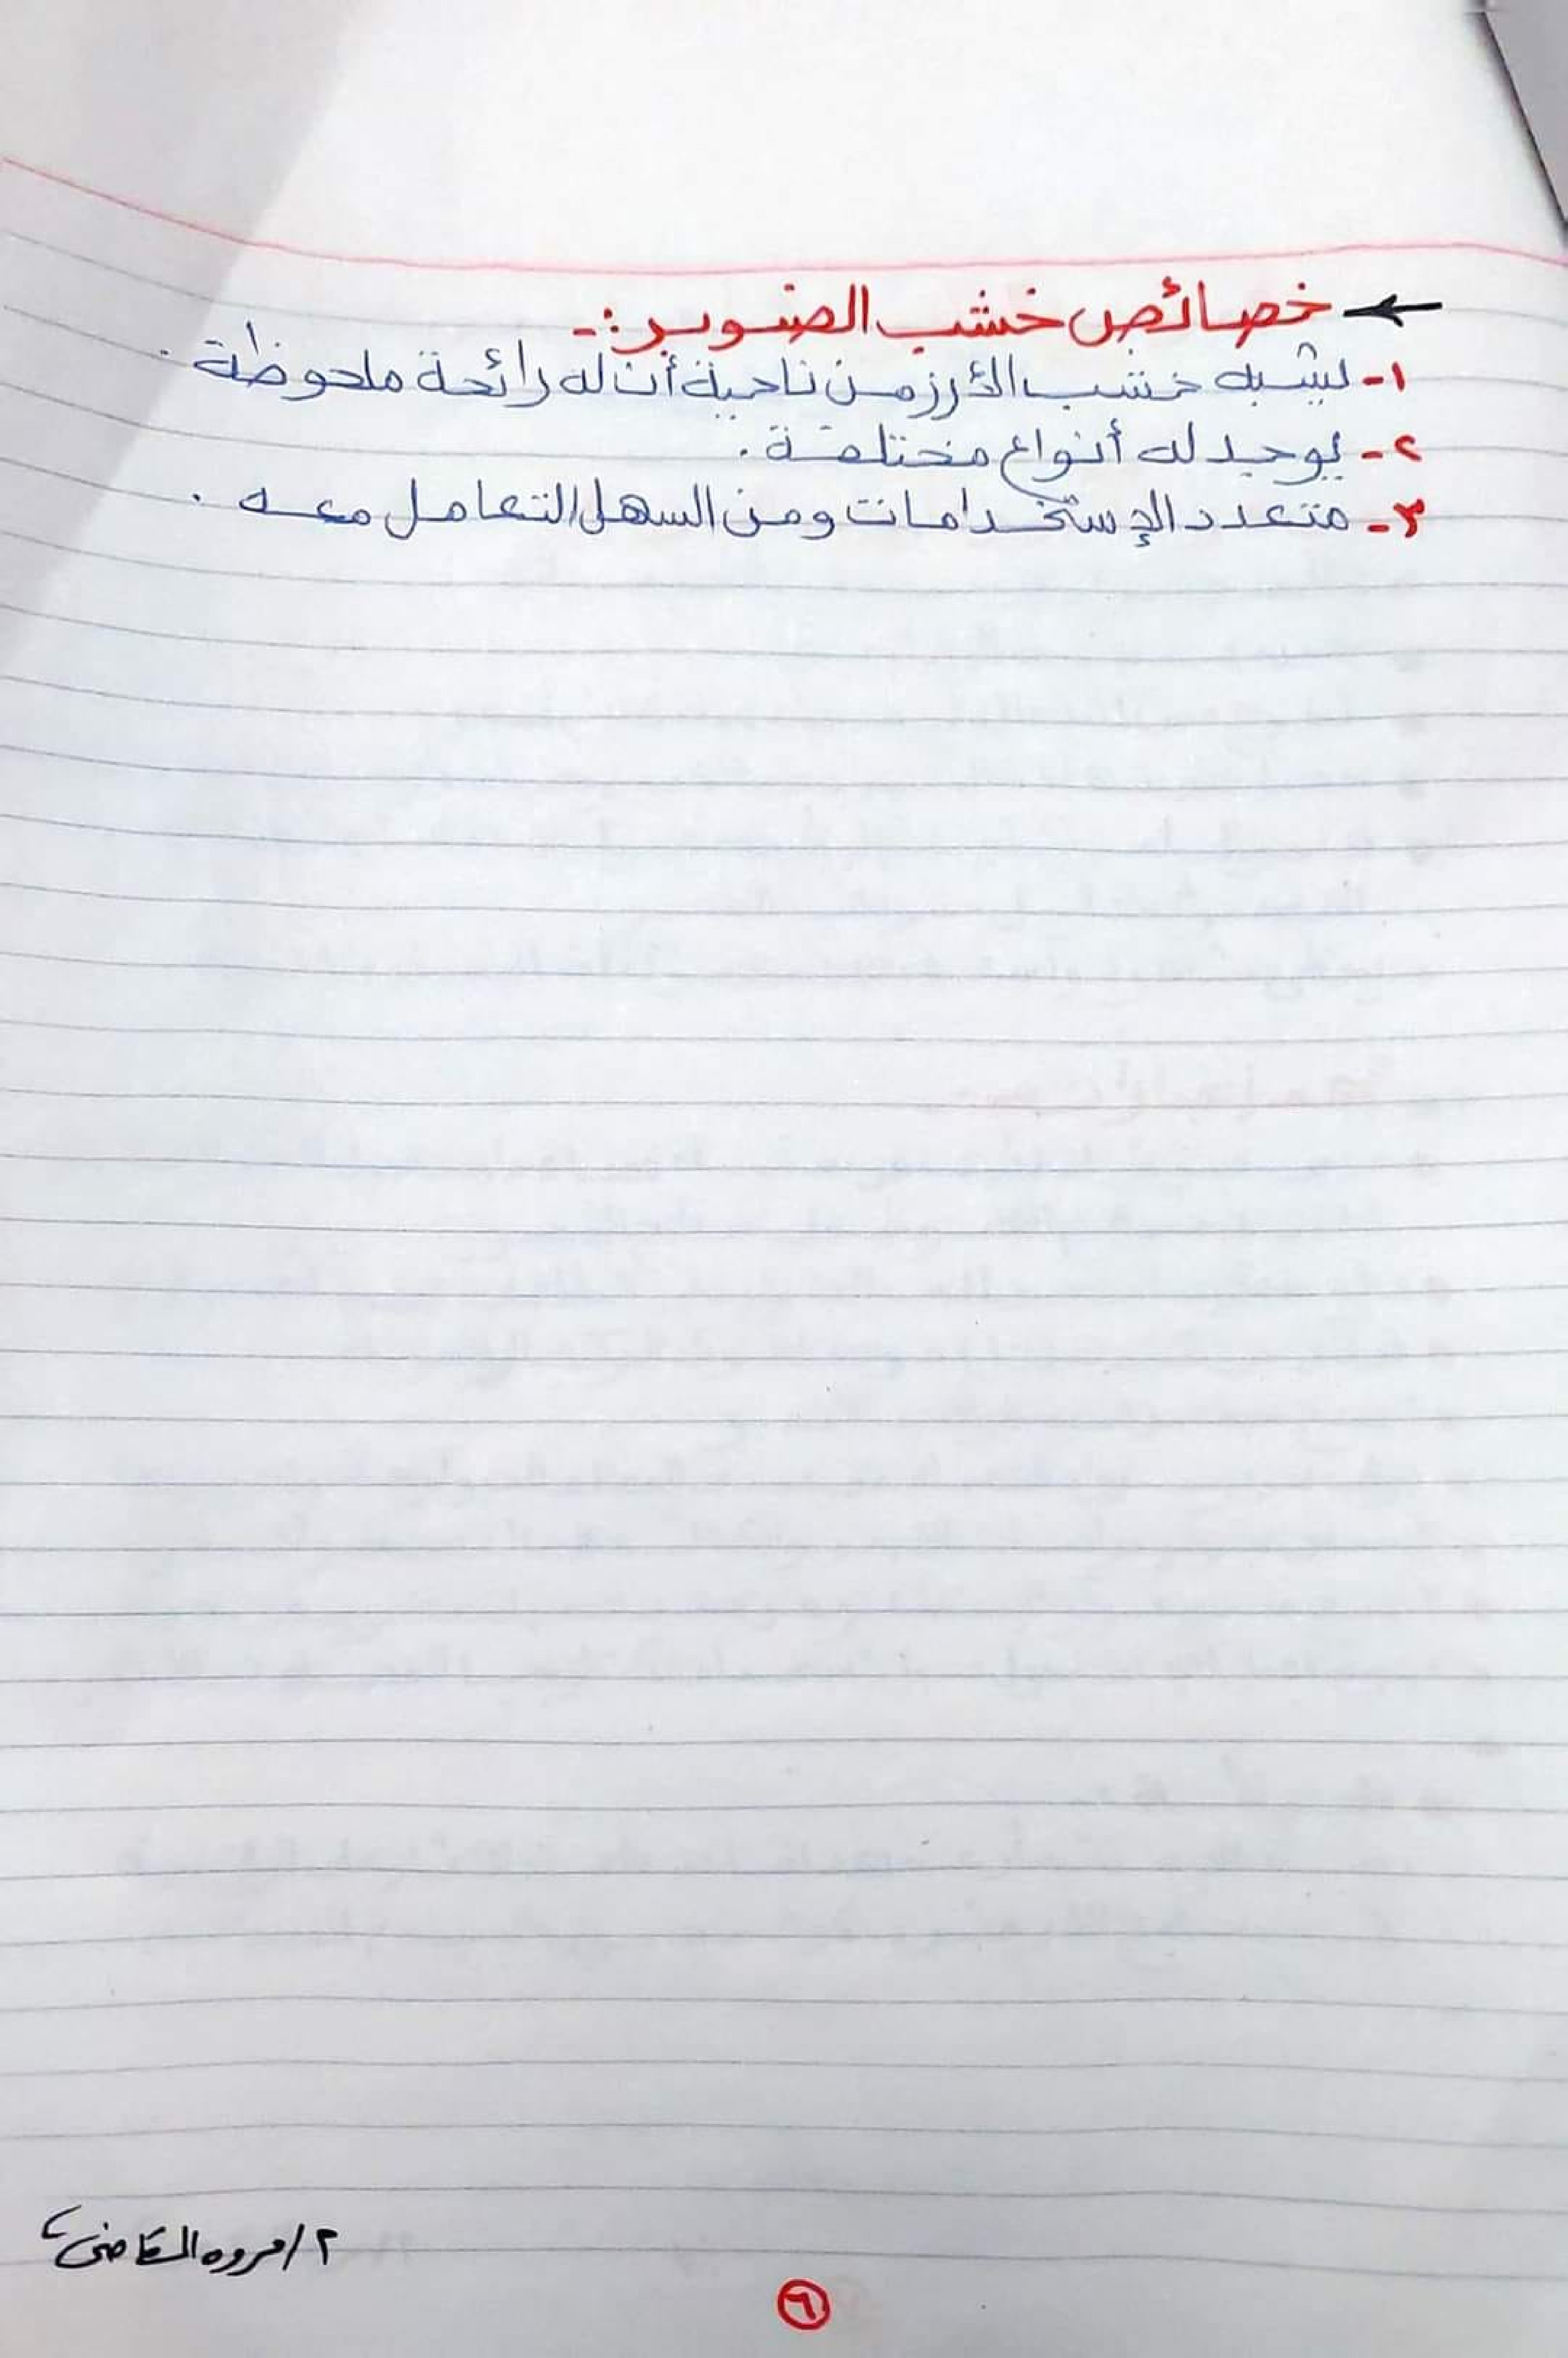 ← خصائص خشب الصنوبر :-
١- يشبه خشب الأرز من ناحية أن له رائحة ملحوظة .
٢- يوجد له أنواع مختلفة .
٣- متعدد الإستخدامات ومن السهل التعامل معه .
م/ مروه القاضى
٦